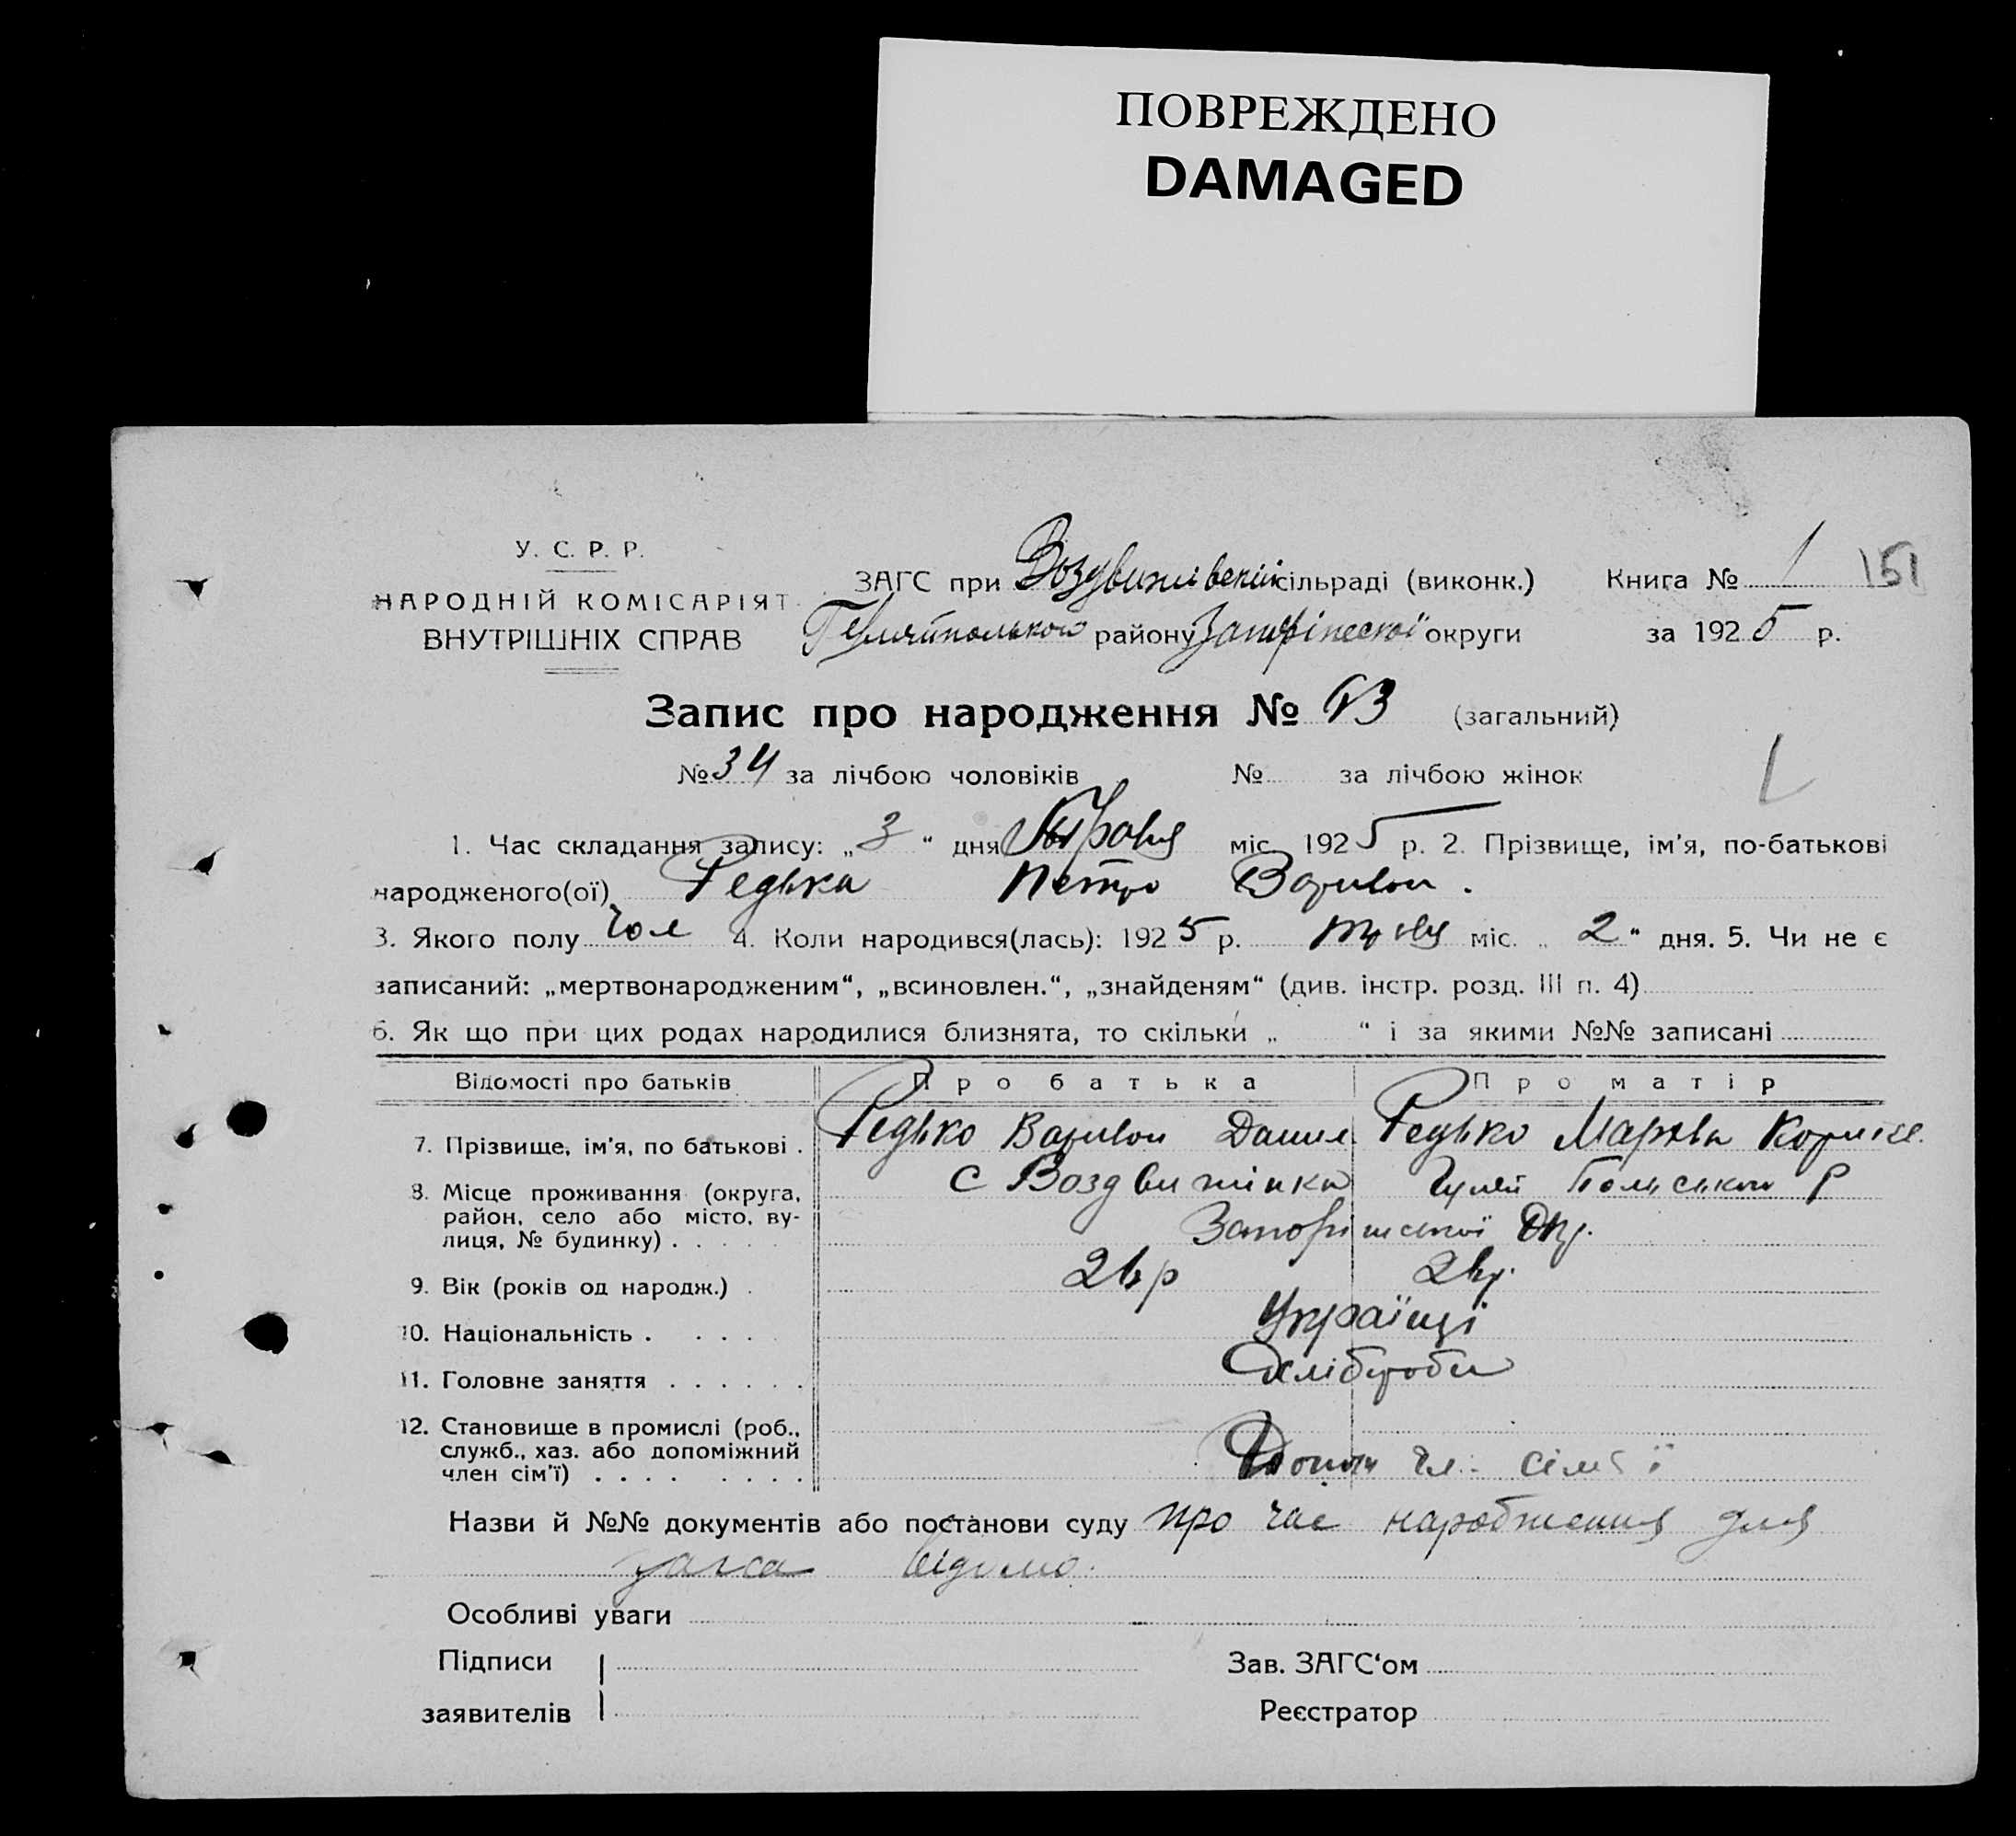 ПОВРЕЖДЕНО
DAMAGED
У. С. Р. Р.
НАРОДНІЙ КОМІСАРІЯТ
ВНУТРІШНІХ СПРАВ
ЗАГС при Воздвижівській сільраді (виконк.) Книга № 1 151
району округи за 1925 р.
Запис про народження № (загальний)
№ 34 за лічбою чоловіків № за лічбою жінок
1. Час складання запису: „3“ дня міс. 1925 р. 2. Прізвище, ім'я, по-батькові
народженого(ої) Редька Петро
3. Якого полу чол 4. Коли народився(лась): 1925 р. міс. „2“ дня. 5. Чи не є
записаний: „мертвонародженим“, „всиновлен.“, „знайденям“ (див. інстр. розд. III п. 4)
6. Як що при цих родах народилися близнята, то скільки „ “ і за якими №№ записані
Відомості про батьків Про батька Про матір
7. Прізвище, ім'я, по батькові . Редько Данил Редько
8. Місце проживання (округа, район, село або місто, вулиця, № будинку) . . . . . с Воздвижінка Гуляй Польського Р
Запоріжської Окр.
9. Вік (років од народж.) .
10. Національність . . . . . Українці
11. Головне заняття . . . . . . Хлібороби
12. Становище в промислі (роб., служб., хаз. або допоміжний член сім'ї) . . . . . . . . чл. сімї
Назви й №№ документів або постанови суду про час народження для
загса відомо.
Особливі уваги
Підписи Зав. ЗАГС‘ом
заявителів Реєстратор